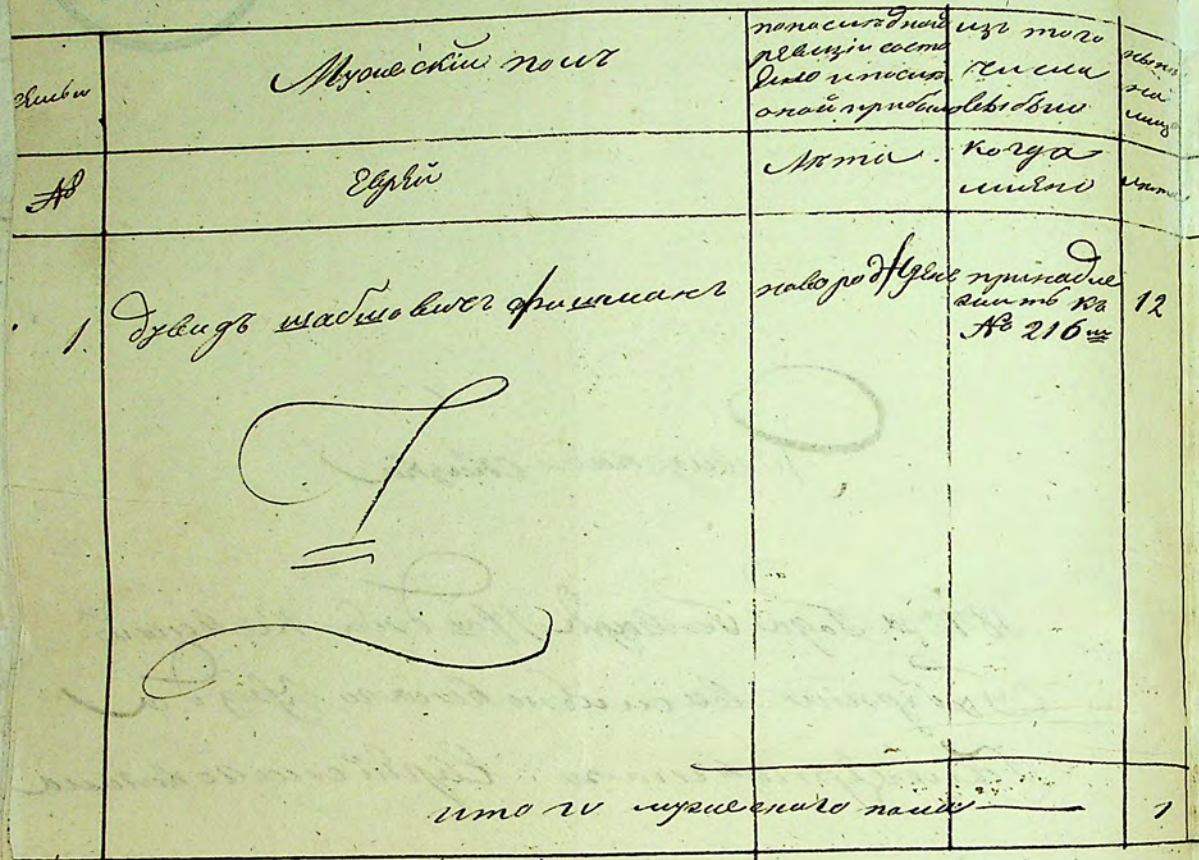 Семьи
Мужескій полъ
по последней
ревизіи состо
яло и после
оной прибыло
изъ того
числа
выбыло
ныне
на
лицо
№
Еврей
Лета.
когда
имено
лета
1.
Дувидъ Шабшовичъ Фишманъ
новорожденъ
принадле
житъ къ
№ 216
12
итого мужескаго пола
1